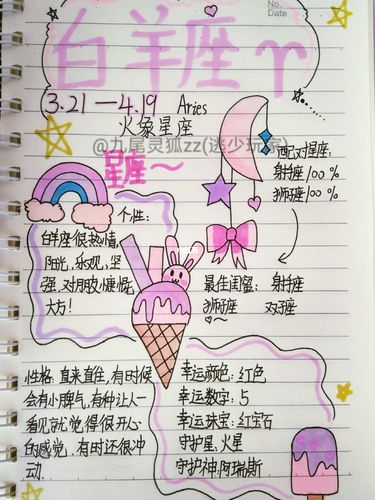 No.
Date
白羊座♈
3.21—4.19 Aries
火象星座
@九尾灵狐zz(逃少玩家)
星座~
配对星座:
射手座100%
狮子座100%
个性:
白羊座很热情,
阳光,乐观,坚
强,对朋友慷慨
大方!
最佳闺蜜: 射手座
狮子座 双子座
性格:直来直往,有时候
会有小脾气,有种让人一
看见就觉得很开心
的感觉,有时还很冲
动.
幸运颜色:红色
幸运数字:5
幸运珠宝:红宝石
守护星:火星
守护神:阿瑞斯